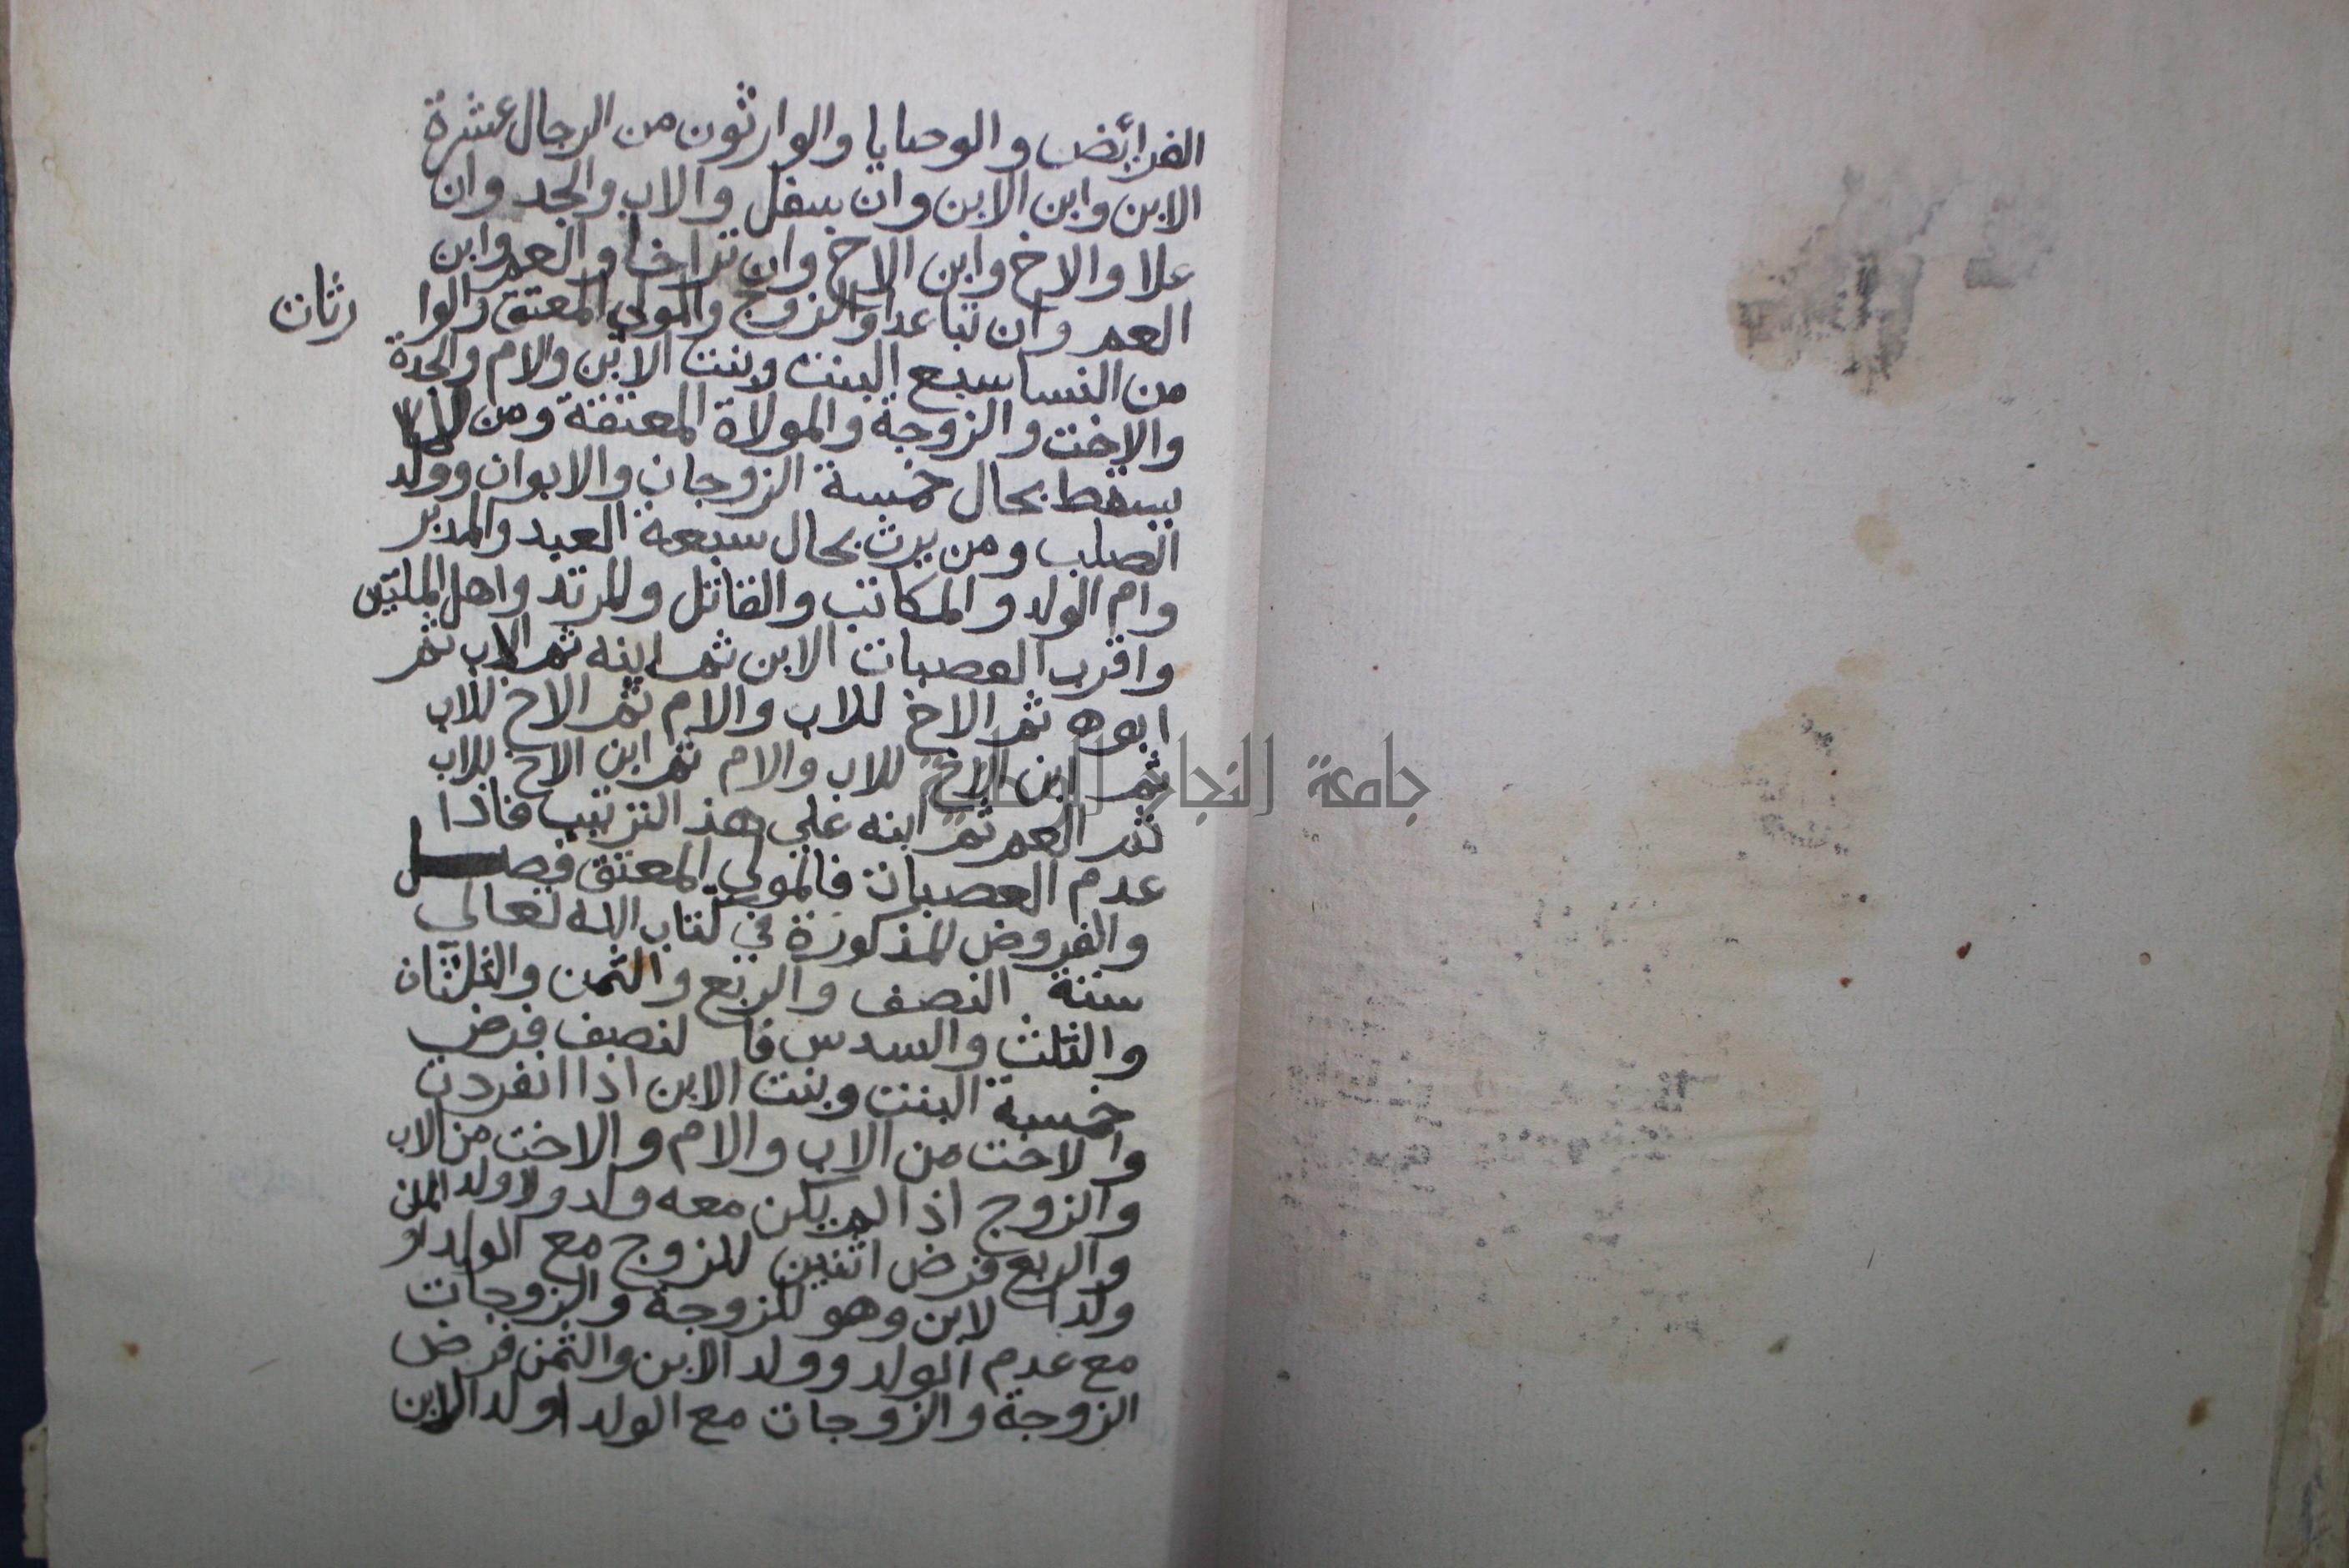 الفرائض والوصايا والوارثون من الرجال عشرة
الابن وابن الابن وان سفل والاب والجد وان
علا والاخ وابن الاخ وان تراخا والعم وابن
العم وان تباعدا والزوج والمولي المعتق والوا رثات
من النسا سبع البنت وبنت الابن والام والجدة
والاخت والزوجة والمولاة المعتقة ومن لا
يسقط بحال خمسة الزوجان والابوان وولد
الصلب ومن يرث بحال سبعة العبد والمدبر
وام الولد والمكاتب والقاتل والمرتد واهل الملتين
واقرب العصبات الابن ثم ابنه ثم الاب ثم
ابوه ثم الاخ للاب والام ثم الاخ للاب
ثم ابن الاخ للاب والام ثم ابن الاخ للاب
ثم العم ثم ابنه علي هذ الترتيب فاذا
عدم العصبات فالمولي المعتق فصل
والفروض المذكورة في كتاب الله تعالي
ستة النصف والربع والثمن والثلثان
والثلث والسدس فا لنصف فرض
خمسة البنت وبنت الابن اذا انفردت
والاخت من الاب والام والاخت من الاب
والزوج اذا لم يكن معه ولد ولا ولد
والربع فرض اثنين للزوج مع الولد او
ولدا لابن وهو للزوجة والزوجات
مع عدم الولد وولد الابن والثمن فرض
الزوجة والزوجات مع الولد او لد الابن
جامعة النجاح الوطنية